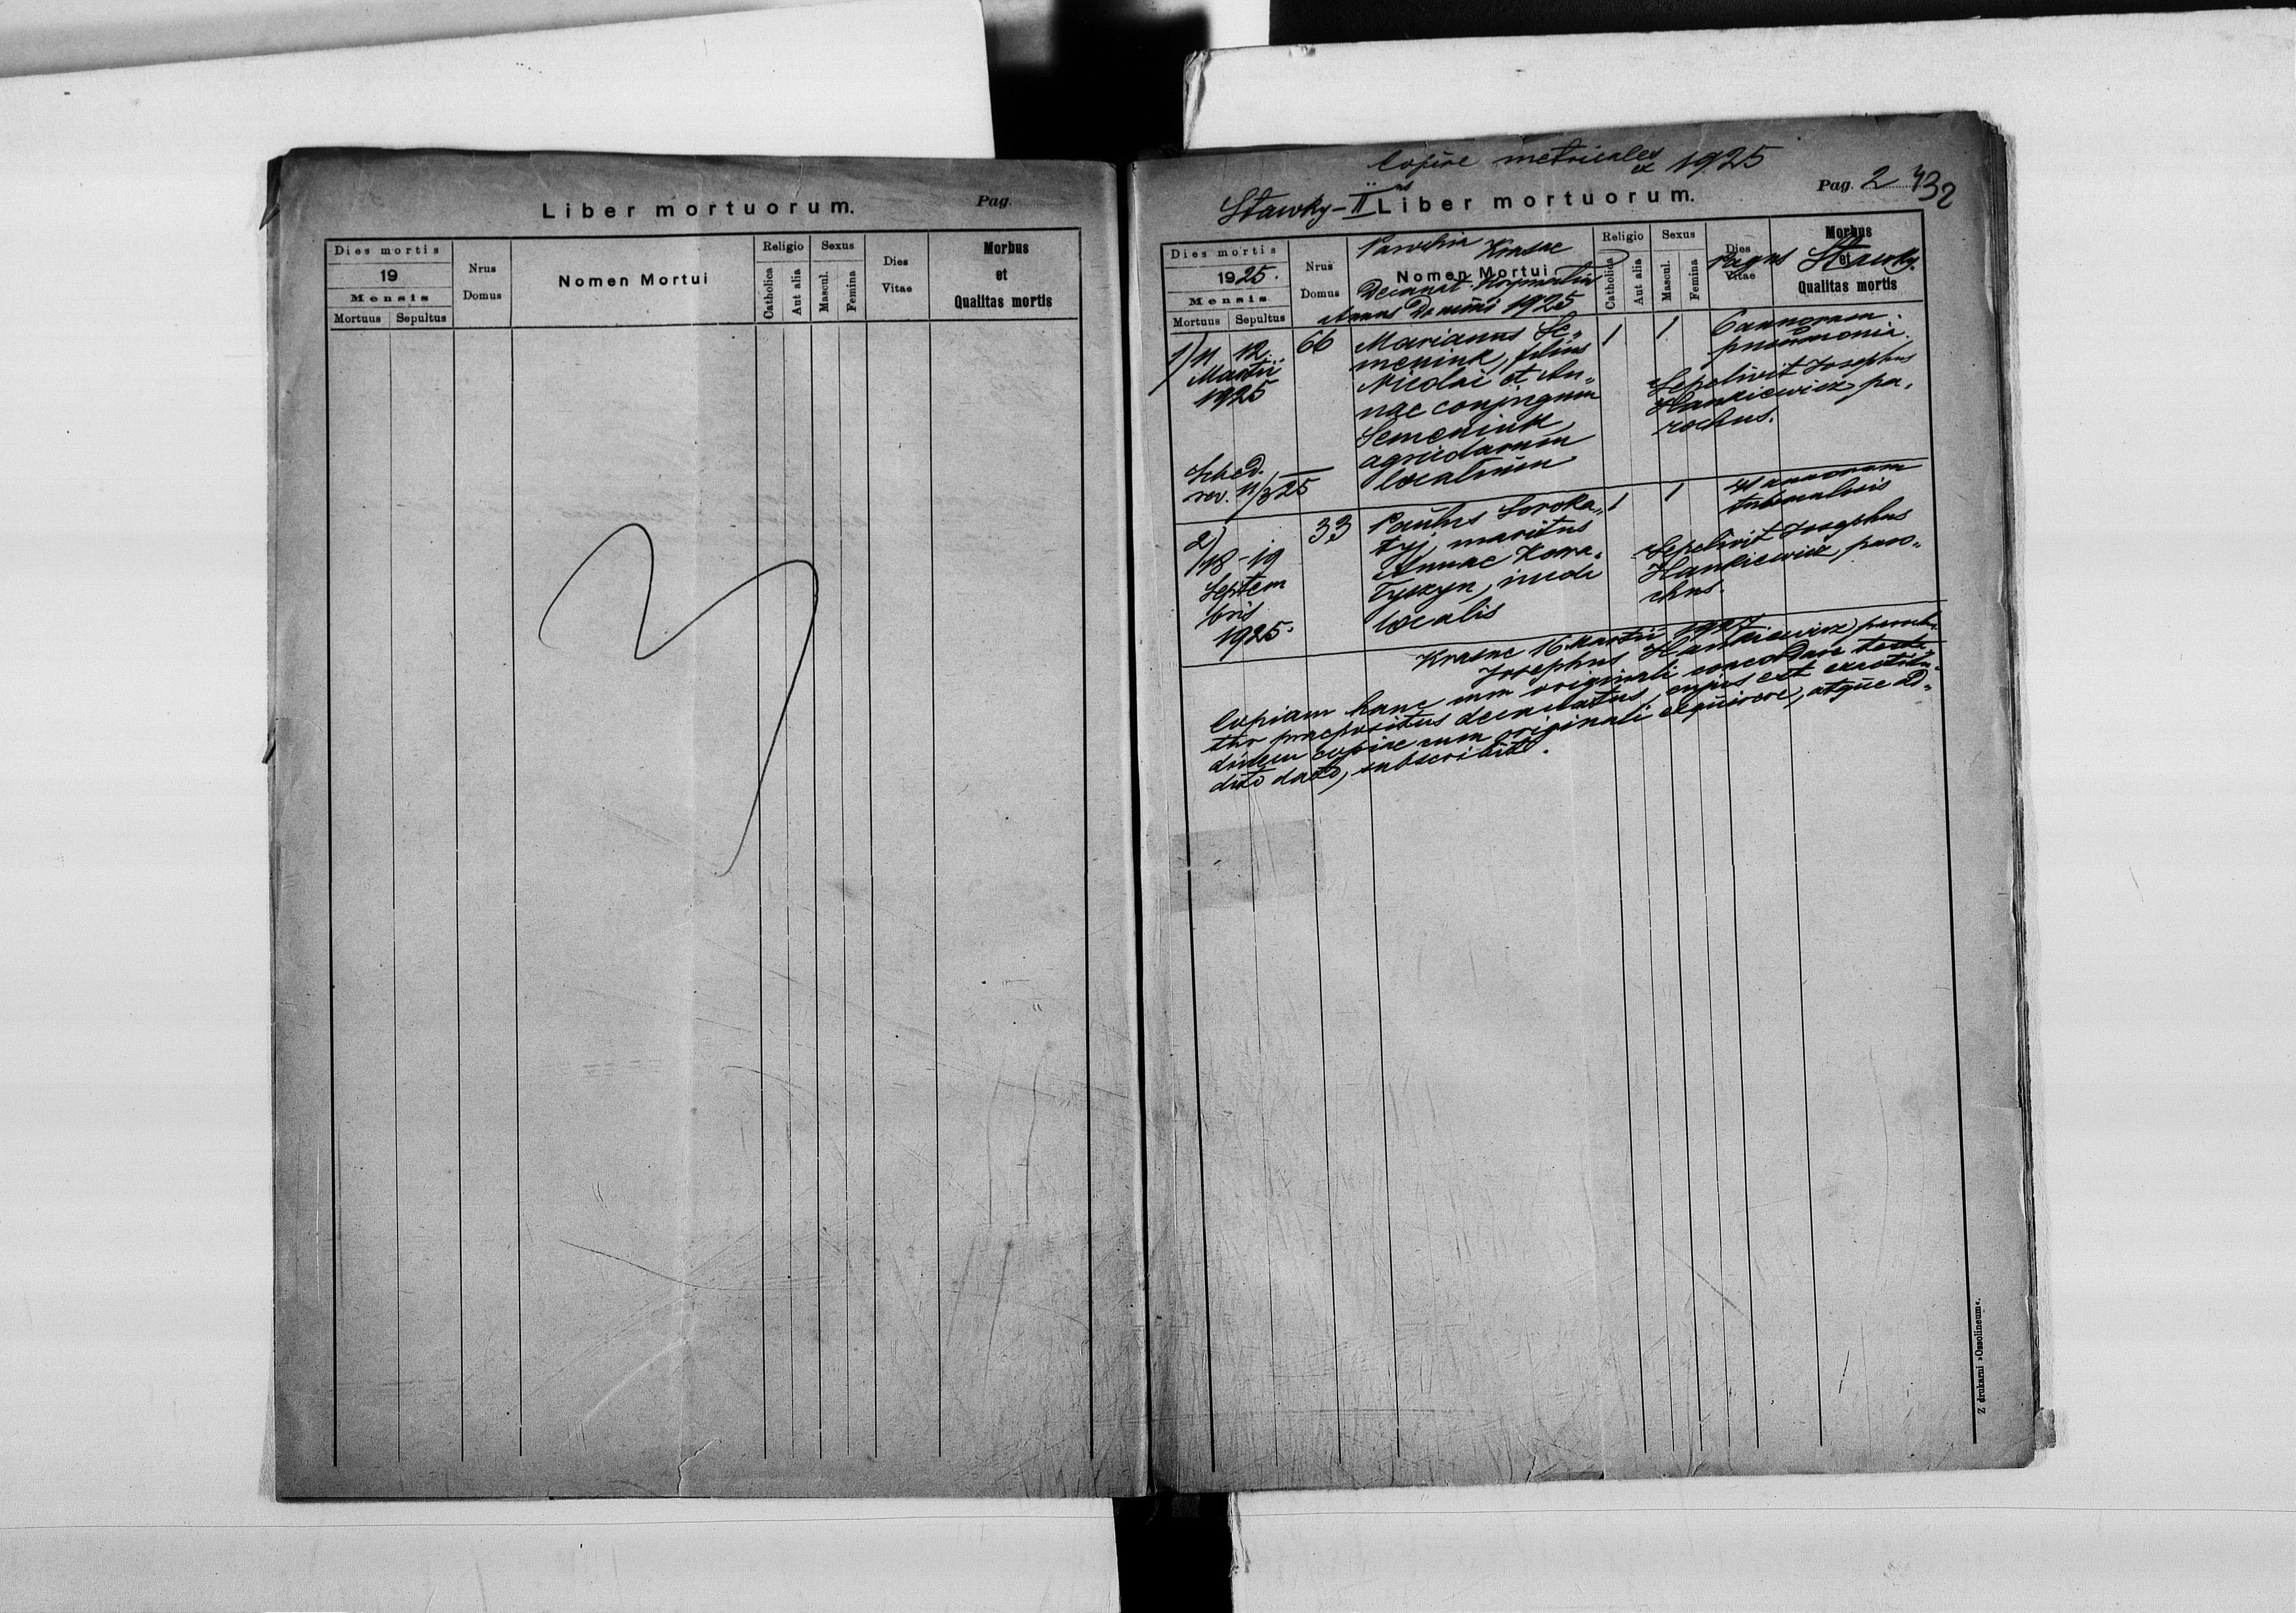 Liber mortuorum.
Pag.
Dies mortis
19
Mensis
Mortuus Sepultus
Nrus
Domus
Nomen Mortui
Religio
Catholica
Aut alia
Sexus
Mascul.
Femina
Dies
Vitae
Morbus
et
Qualitas mortis
Copiae metricales
ex 1925
Stawky - II
Liber mortuorum.
Pag. 2
432
Dies mortis
1925.
Mensis
Mortuus Sepultus
Nrus
Domus
Parochia Krasne
Nomen Mortui
Decanat
Annus Domini 1925
Religio
Catholica
Aut alia
Sexus
Mascul.
Femina
Dies
Vitae
Pagus Stawky.
Morbus
et
Qualitas mortis
1) 11 12
Martii
1925
66
Marianus Se-
meniuk, filius
Nicolai et An-
nae conjugum
Semeniuk,
agricolarum
localium
1 1
6 annorum
pneumonia.
Sepelivit Josephus
Hankiewicz pa-
rochus.
Sched.
rev. 11/3 25
2)
18 - 19
Septem
bris
1925.
33
Paulus Soroka-
tyj, maritus
Annae
localis
1 1
41 annorum
tuberculosis
Sepelivit Josephus
Hankiewicz paro-
chus.
Krasne 16 Martii 1927
Josephus Hankiewicz parochus
Copiam hanc cum originali concordare testa-
tur praepositus decanatus, cujus est exactitu-
dinem copiae cum originali exquirere, atque ad-
dito dato, subscribito.
Z drukarni »Ossolineum«.